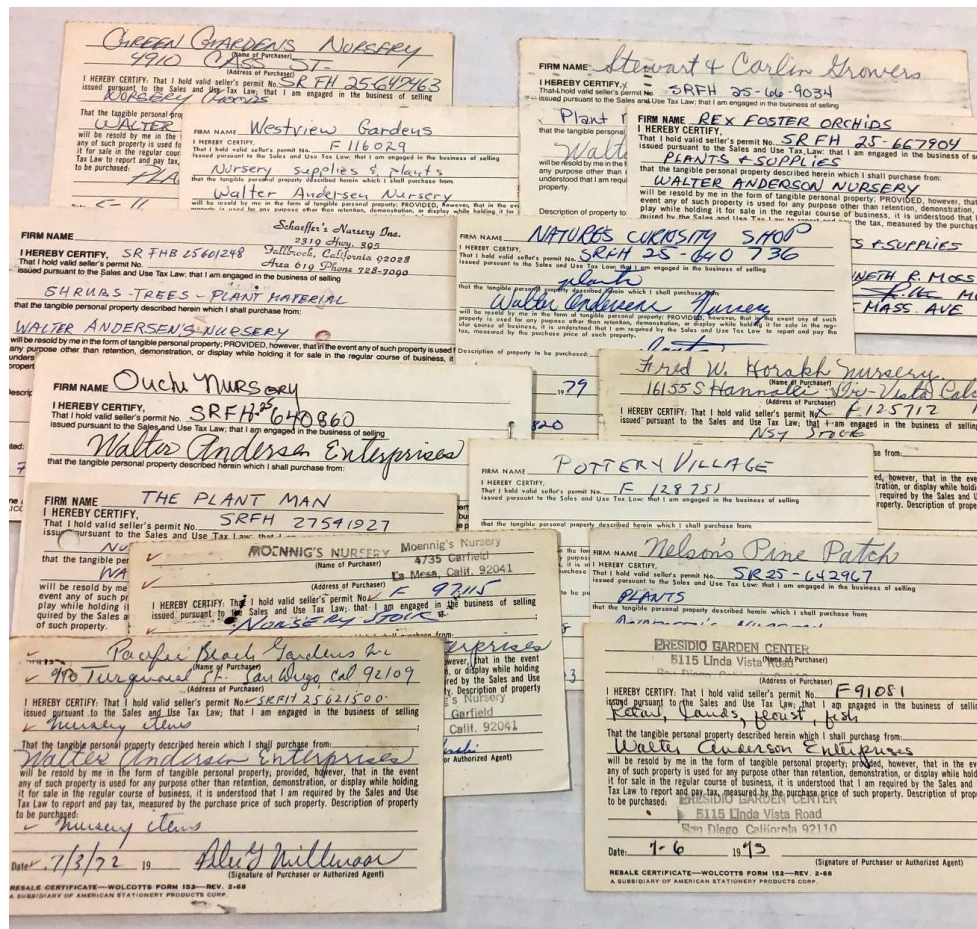 GREEN GARDENS NURSERY
(Name of Purchaser)
4910 CASS ST-
(Address of Purchaser)
I HEREBY CERTIFY: That I hold valid seller's permit No. SR FH 25-647463
issued pursuant to the Sales and Use Tax Law; that I am engaged in the business of selling
NURSERY GOODS
That the tangible personal pro
WALTER
will be resold by me in the
any of such property is used f
it for sale in the regular cour
Tax Law to report and pay tax,
to be purchased:
PLA
5-11
FIRM NAME Westview Gardens
I HEREBY CERTIFY,
That I hold valid seller's permit No. F 116029
issued pursuant to the Sales and Use Tax Law; that I am engaged in the business of selling
Nursery supplies & plants
that the tangible personal property described herein which I shall purchase from:
Walter Andersen Nursery
will be resold by me in the form of tangible personal property; PROVIDED, however, that in the eve
FIRM NAME Stewart & Carlin Growers
I HEREBY CERTIFY,
That I hold valid seller's permit No. SRFH 25-66-9034
issued pursuant to the Sales and Use Tax Law; that I am engaged in the business of selling
Plant
that the tangible personal
Walt
will be resold by me in the
any purpose other than r
understood that I am requi
property.
Description of property to
FIRM NAME REX FOSTER ORCHIDS
I HEREBY CERTIFY,
That I hold valid seller's permit No. SR FH 25-667904
issued pursuant to the Sales and Use Tax Law; that I am engaged in the business of s
PLANTS & SUPPLIES
that the tangible personal property described herein which I shall purchase from:
WALTER ANDERSON NURSERY
will be resold by me in the form of tangible personal property; PROVIDED, however, that
event any of such property is used for any purpose other than retention, demonstration, or
play while holding it for sale in the regular course of business, it is understood that I
the tax, measured by the purchas
S & SUPPLIES
NETH R. MOSS
MASS. AVE
FIRM NAME
Schaeffer's Nursery Inc.
2319 Hwy. 395
Fallbrook, California 92028
Area 619 Phone 728-7090
I HEREBY CERTIFY, SR FHB 25601248
That I hold valid seller's permit No.
issued pursuant to the Sales and Use Tax Law; that I am engaged in the business of selling
SHRUBS-TREES-PLANT MATERIAL
that the tangible personal property described herein which I shall purchase from:
WALTER ANDERSEN'S NURSERY
will be resold by me in the form of tangible personal property; PROVIDED, however, that in the event any of such property is used f
any purpose other than retention, demonstration, or display while holding it for sale in the regular course of business, it
FIRM NAME NATURE'S CURIOSITY SHOP
I HEREBY CERTIFY,
That I hold valid seller's permit No. SRFH 25-640 736
issued pursuant to the Sales and Use Tax Law; that I am engaged in the business of selling
plants
that the tangible personal property described herein which I shall purchase from:
Walter Andersens Nursery
will be resold by me in the form of tangible personal property; PROVIDED, however, that in the event any of such
property is used for any purpose other than retention, demonstration, or display while holding it for sale in the reg-
ular course of business, it is understood that I am required by the Sales and Use Tax Law to report and pay the
tax, measured by the purchase price of such property.
Description of property to be purchased:
1979
820
Fred W. Horakh Nursery.
(Name of Purchaser)
16155 S Hannalei Dr-Vista Calif
(Address of Purchaser)
I HEREBY CERTIFY:
That I hold valid seller's permit No. F 125712
issued pursuant to the Sales and Use Tax Law; that I am engaged in the business of selling
NSY STOCK
se from:
FIRM NAME Ouchi NURSERY
I HEREBY CERTIFY,
That I hold valid seller's permit No. SRFH-25 640860
issued pursuant to the Sales and Use Tax Law; that I am engaged in the business of selling
Walter Andersen Enterprises
that the tangible personal property described herein which I shall purchase from:
FIRM NAME POTTERY VILLAGE
I HEREBY CERTIFY,
That I hold valid seller's permit No. F 128751
issued pursuant to the Sales and Use Tax Law; that I am engaged in the business of selling
that the tangible personal property described herein which I shall purchase from:
FIRM NAME THE PLANT MAN
I HEREBY CERTIFY,
That I hold valid seller's permit No. SRFH 27541927
issued pursuant to the Sales and Use Tax Law; that I
NU
that the tangible per
WA
will be resold by me
event any of such p
play while holding i
quired by the Sales a
of such property.
MOENNIG'S NURSERY Moennig's Nursery
(Name of Purchaser)
4735 Garfield
La Mesa, Calif. 92041
(Address of Purchaser)
I HEREBY CERTIFY: That I hold valid seller's permit No. F 97115
issued pursuant to the Sales and Use Tax Law; that I am engaged in the business of selling
NURSERY STOCK
shall purchase from:
erprises
wever, that in the event
n, or display while holding
red by the Sales and Use
ty. Description of property
g's Nursery
Garfield
Calif. 92041
or Authorized Agent)
FIRM NAME Nelson's Pine Patch
I HEREBY CERTIFY,
That I hold valid seller's permit No. SR25-642967
issued pursuant to the Sales and Use Tax Law; that I am engaged in the business of selling
PLANTS
that the tangible personal property described herein which I shall purchase from:
Pacific Beach Gardens Inc
(Name of Purchaser)
970 Turquoise St. San Diego Cal 92109
(Address of Purchaser)
I HEREBY CERTIFY: That I hold valid seller's permit No. SRFH 25621500
issued pursuant to the Sales and Use Tax Law; that I am engaged in the business of selling
Nursery items
That the tangible personal property described herein which I shall purchase from:
Walter Andersen Enterprises
will be resold by me in the form of tangible personal property; provided, however, that in the event
any of such property is used for any purpose other than retention, demonstration, or display while holding
it for sale in the regular course of business, it is understood that I am required by the Sales and Use
Tax Law to report and pay tax, measured by the purchase price of such property. Description of property
to be purchased:
Nursery items
Date: 7/3/72 19
(Signature of Purchaser or Authorized Agent)
RESALE CERTIFICATE—WOLCOTTS FORM 153—REV. 2-68
A SUBSIDIARY OF AMERICAN STATIONERY PRODUCTS CORP.
PRESIDIO GARDEN CENTER
5115 Linda Vista Road
(Name of Purchaser)
San Diego California
(Address of Purchaser)
I HEREBY CERTIFY: That I hold valid seller's permit No. F91081
issued pursuant to the Sales and Use Tax Law; that I am engaged in the business of selling
Retail, Lands, floust, fish
That the tangible personal property described herein which I shall purchase from:
Walter Anderson Enterprises
will be resold by me in the form of tangible personal property; provided, however, that in the ev
any of such property is used for any purpose other than retention, demonstration, or display while hold
it for sale in the regular course of business, it is understood that I am required by the Sales and
Tax Law to report and pay tax, measured by the purchase price of such property. Description of prop
to be purchased:
PRESIDIO GARDEN CENTER
5115 Linda Vista Road
San Diego California 92110
Date: 7-6 1973
(Signature of Purchaser or Authorized Agent)
RESALE CERTIFICATE—WOLCOTTS FORM 152—REV. 2-68
A SUBSIDIARY OF AMERICAN STATIONERY PRODUCTS CORP.